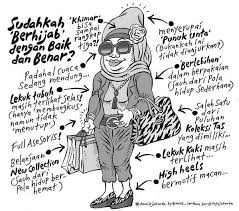 Sudahkah
'Berhijab'
dengan Baik
dan Benar?
'Khimar'
bisa
sampai
rangkap
tiga?!
menyerupai
'Punuk Unta'
(Bukankah ini
tidak dianjurkan?)
Padahal Cuaca
Sedang mendung...
Berlebihan
dalam berpakaian
(Jauh dari Pola
Hidup Sederhana)
Lekuk tubuh
masih terlihat jelas!
(hanya 'membungkus',
namun tidak
'menutup')
Salah Satu
dari
Puluhan
Koleksi Tas
yang dimiliki...
Full Asesoris!
Belanjaan
New Collection
(Jauh dari
Pola hidup ber-
hemat)
Lekuk Kaki masih
terlihat...
High heels
bermotis macan...